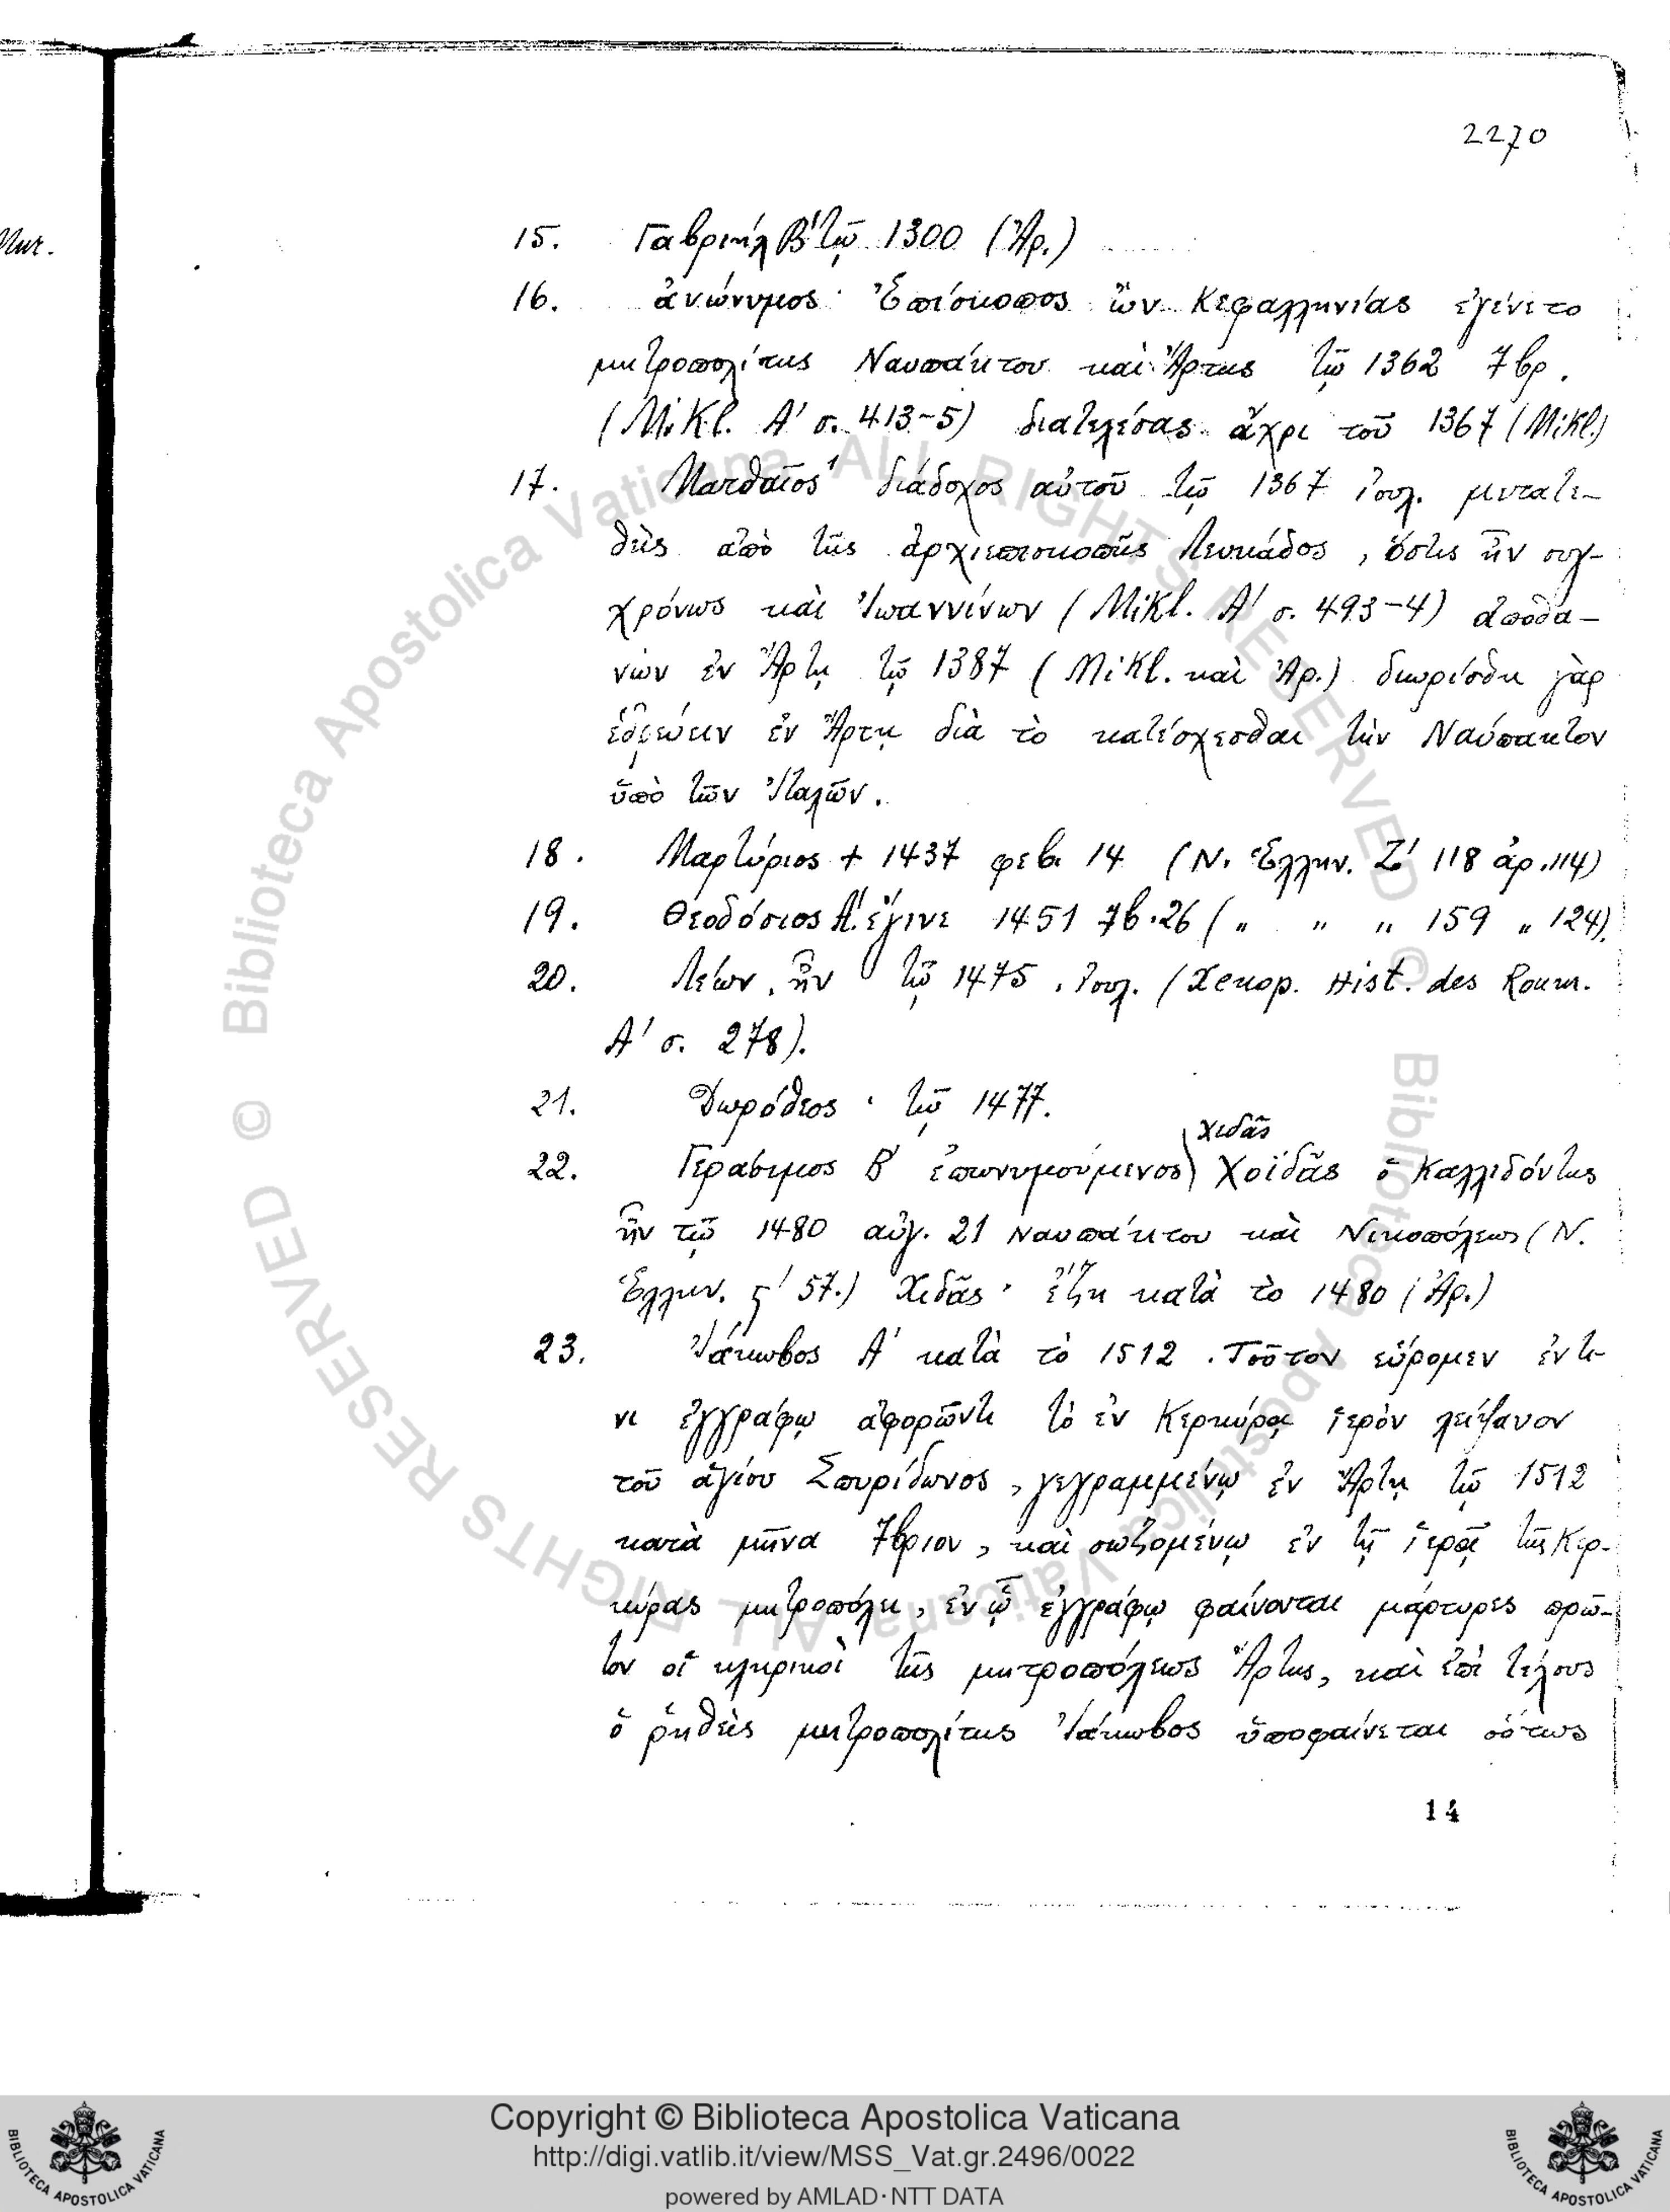 2270
15. Γαβριὴλ Β' τῷ 1300 (Ἀρ.)
16. ἀνώνυμος· Ἐπίσκοπος ὢν Κεφαλληνίας ἐγένετο
μητροπολίτης Ναυπάκτου καὶ Ἄρτης τῷ 1362 7βρ.
(Mikl. Α' σ. 413-5) διατελέσας ἄχρι τοῦ 1367 (Mikl.)
17. Ματθαῖος διάδοχος αὐτοῦ τῷ 1367 ἰουλ. μετατε-
θεὶς ἀπὸ τῆς ἀρχιεπισκοπῆς Λευκάδος, ὅστις ἦν συγ-
χρόνως καὶ Ἰωαννίνων (Mikl. Α' σ. 493-4) ἀποθα-
νὼν ἐν Ἄρτῃ τῷ 1387 (Mikl. καὶ Ἀρ.) διωρίσθη γὰρ
ἑδρεύειν ἐν Ἄρτῃ διὰ τὸ κατέσχεσθαι τὴν Ναύπακτον
ὑπὸ τῶν Ἰταλῶν.
18. Μαρτύριος + 1437 φεβ. 14 (Ν. Ἑλλην. Ζ' 118 ἀρ. 114)
19. Θεοδόσιος Α'. ἔγινε 1451 7β. 26 ( " " " 159 " 124).
20. Λέων. ἦν τῷ 1475. ἰουλ. (Xenop. Hist. des Roum.
Α' σ. 278).
21. Δωρόθεος· τῷ 1477.
Χιδᾶς
22. Γεράσιμος Β' ἐπωνυμούμενος Χοϊδᾶς ὁ Καλλιδόντης
ἦν τῷ 1480 αὐγ. 21 Ναυπάκτου καὶ Νικοπόλεως (Ν.
Ἑλλην. ϛ' 57.) Χιδᾶς· ἔζη κατὰ τὸ 1480 (Ἀρ.)
23. Ἰάκωβος Α' κατὰ τὸ 1512. Τοῦτον εὕρομεν ἔν τι-
νι ἐγγράφῳ ἀφορῶντι τὸ ἐν Κερκύρᾳ ἱερὸν λείψανον
τοῦ ἁγίου Σπυρίδωνος, γεγραμμένῳ ἐν Ἄρτῃ τῷ 1512
κατὰ μῆνα 7βριον, καὶ σωζομένῳ ἐν τῇ ἱερᾷ τῆς Κερ-
κύρας μητροπόλει, ἐν ᾧ ἐγγράφῳ φαίνονται μάρτυρες πρῶ-
τον οἱ κληρικοὶ τῆς μητροπόλεως Ἄρτης, καὶ ἐπὶ τέλους
ὁ ῥηθεὶς μητροπολίτης Ἰάκωβος ὑποφαίνεται οὕτως
14
Copyright © Biblioteca Apostolica Vaticana
http://digi.vatlib.it/view/MSS_Vat.gr.2496/0022
powered by AMLAD·NTT DATA